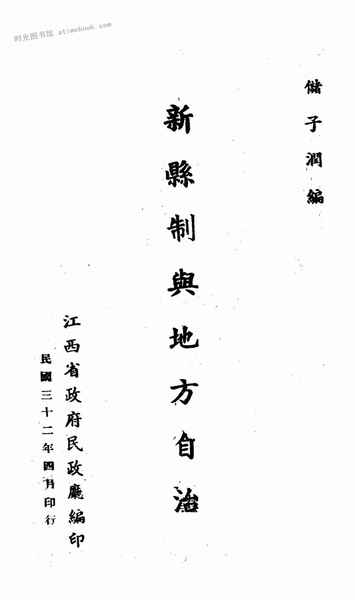 儲子潤編
新縣制與地方自治
江西省政府民政廳編印
民國三十二年四月印行
时光图书馆 atimebook.com